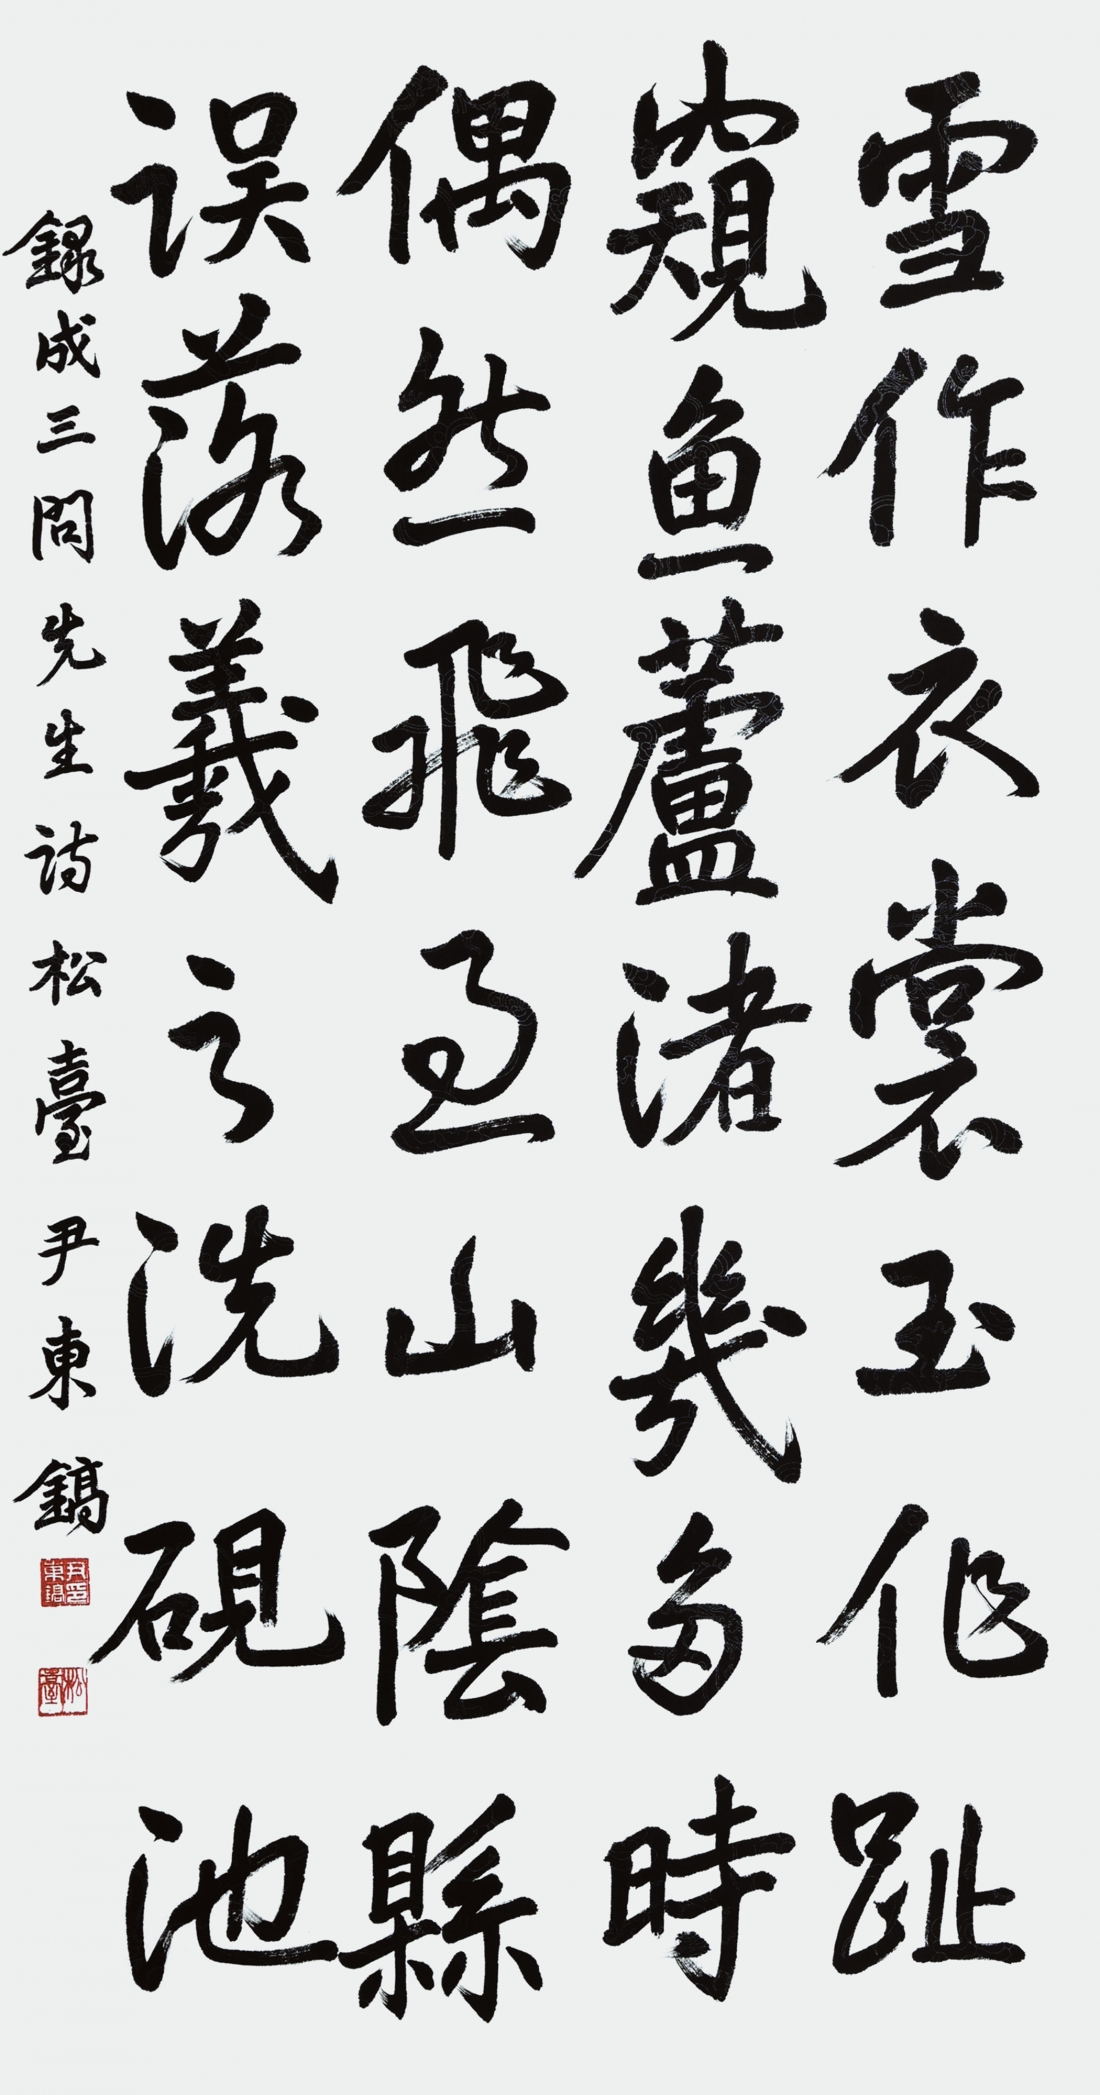 雪作衣裳玉作趾
窺魚蘆渚幾多時
偶然飛過山陰縣
誤落羲之洗硯池
錄成三問先生詩 松臺 尹東鎬
尹東鎬印
松臺